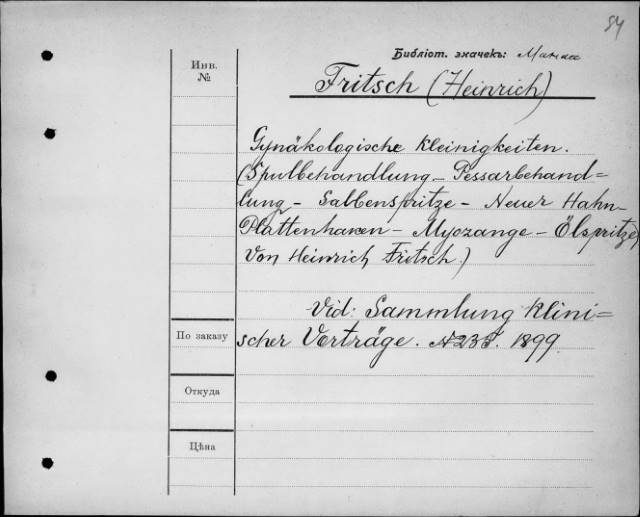 84
Библіот. значекъ:
Инв.
№
Fritsch (Heinrich)
Gynäkologische Kleinigkeiten.
(Spulbehandlung - Pessarbehand=
lung - Salbenspritze - Neuer Hahn-
Plattenhaken - Myozange - Ölspritze)
Von Heinrich Fritsch.)
Vid: Sammlung Klini=
По заказу
scher Vorträge. 1899.
Откуда
Цѣна